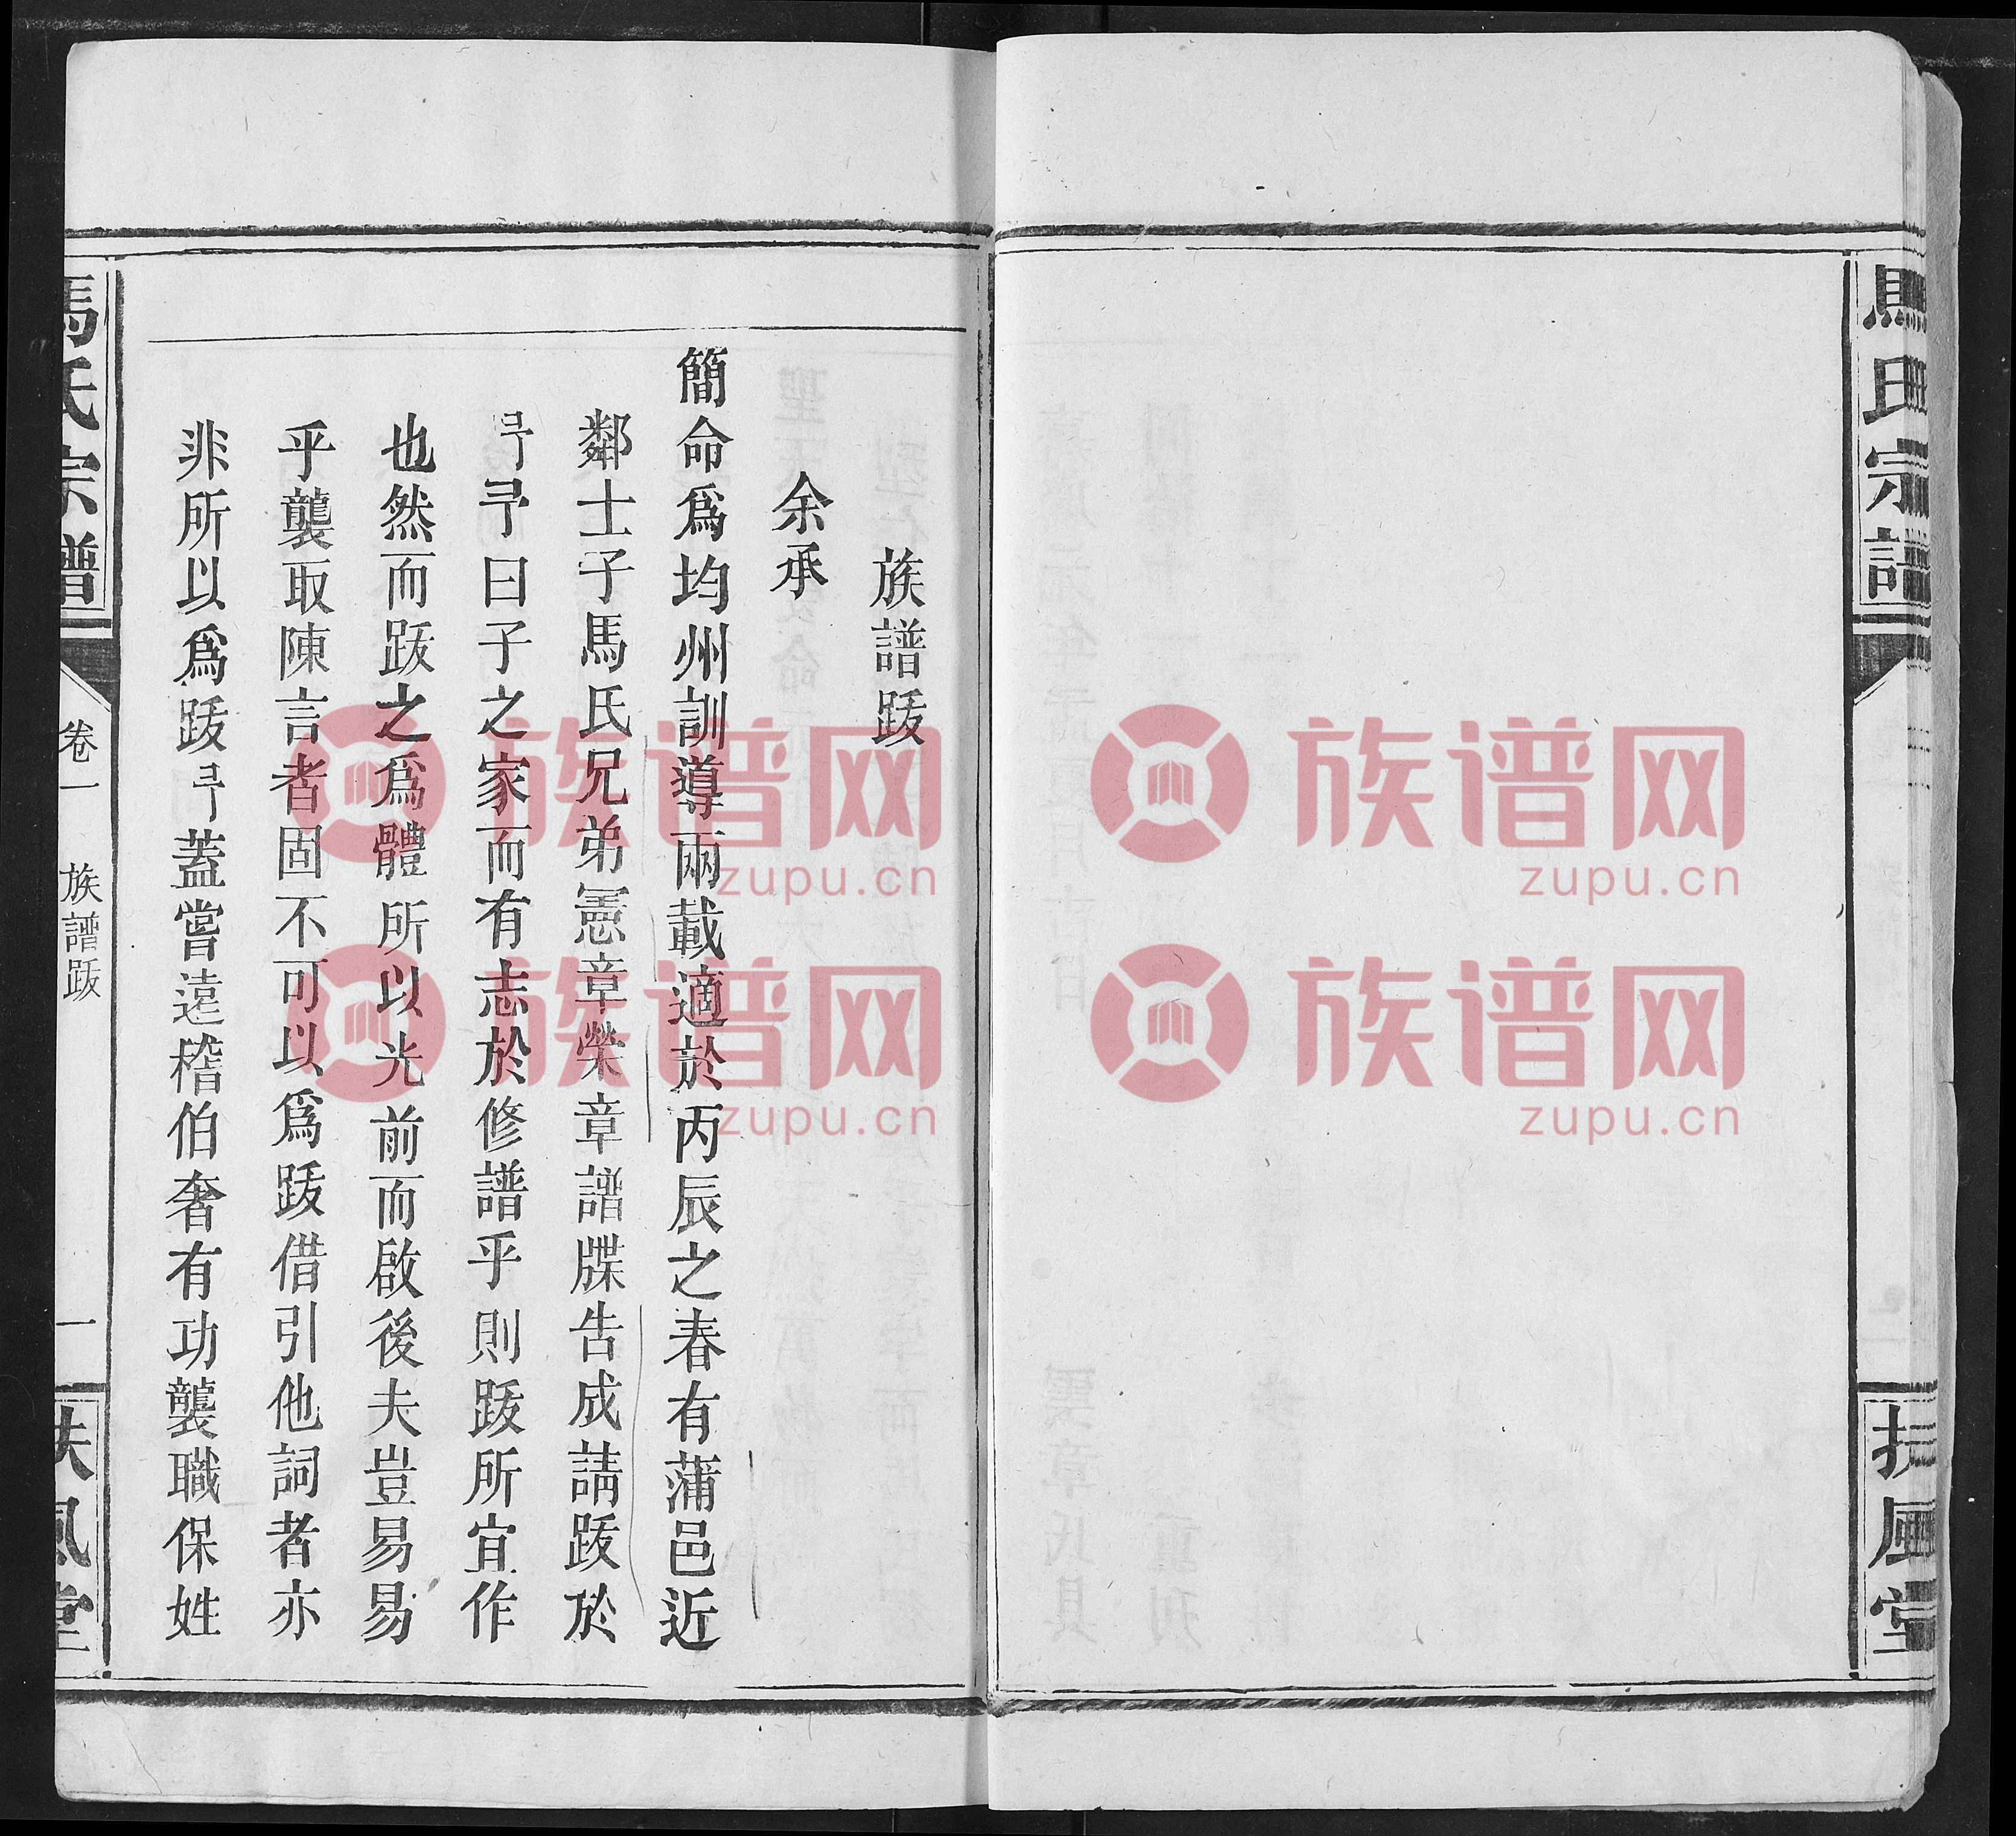 馬氏宗譜
扶風堂
族譜跋
余承
簡命爲均州訓導兩載適於丙辰之春有蒲邑近
鄰士子馬氏兄弟憲章榮章譜牒告成請跋於
予予曰子之家而有志於修譜乎則跋所宜作
也然而跋之爲體所以光前而啟後夫豈易易
乎襲取陳言者固不可以爲跋借引他詞者亦
非所以爲跋予蓋嘗遠稽伯奢有功襲職保姓
馬氏宗譜
卷一
族譜跋
一
扶風堂
族谱网
zupu.cn
族谱网
zupu.cn
族谱网
zupu.cn
族谱网
zupu.cn